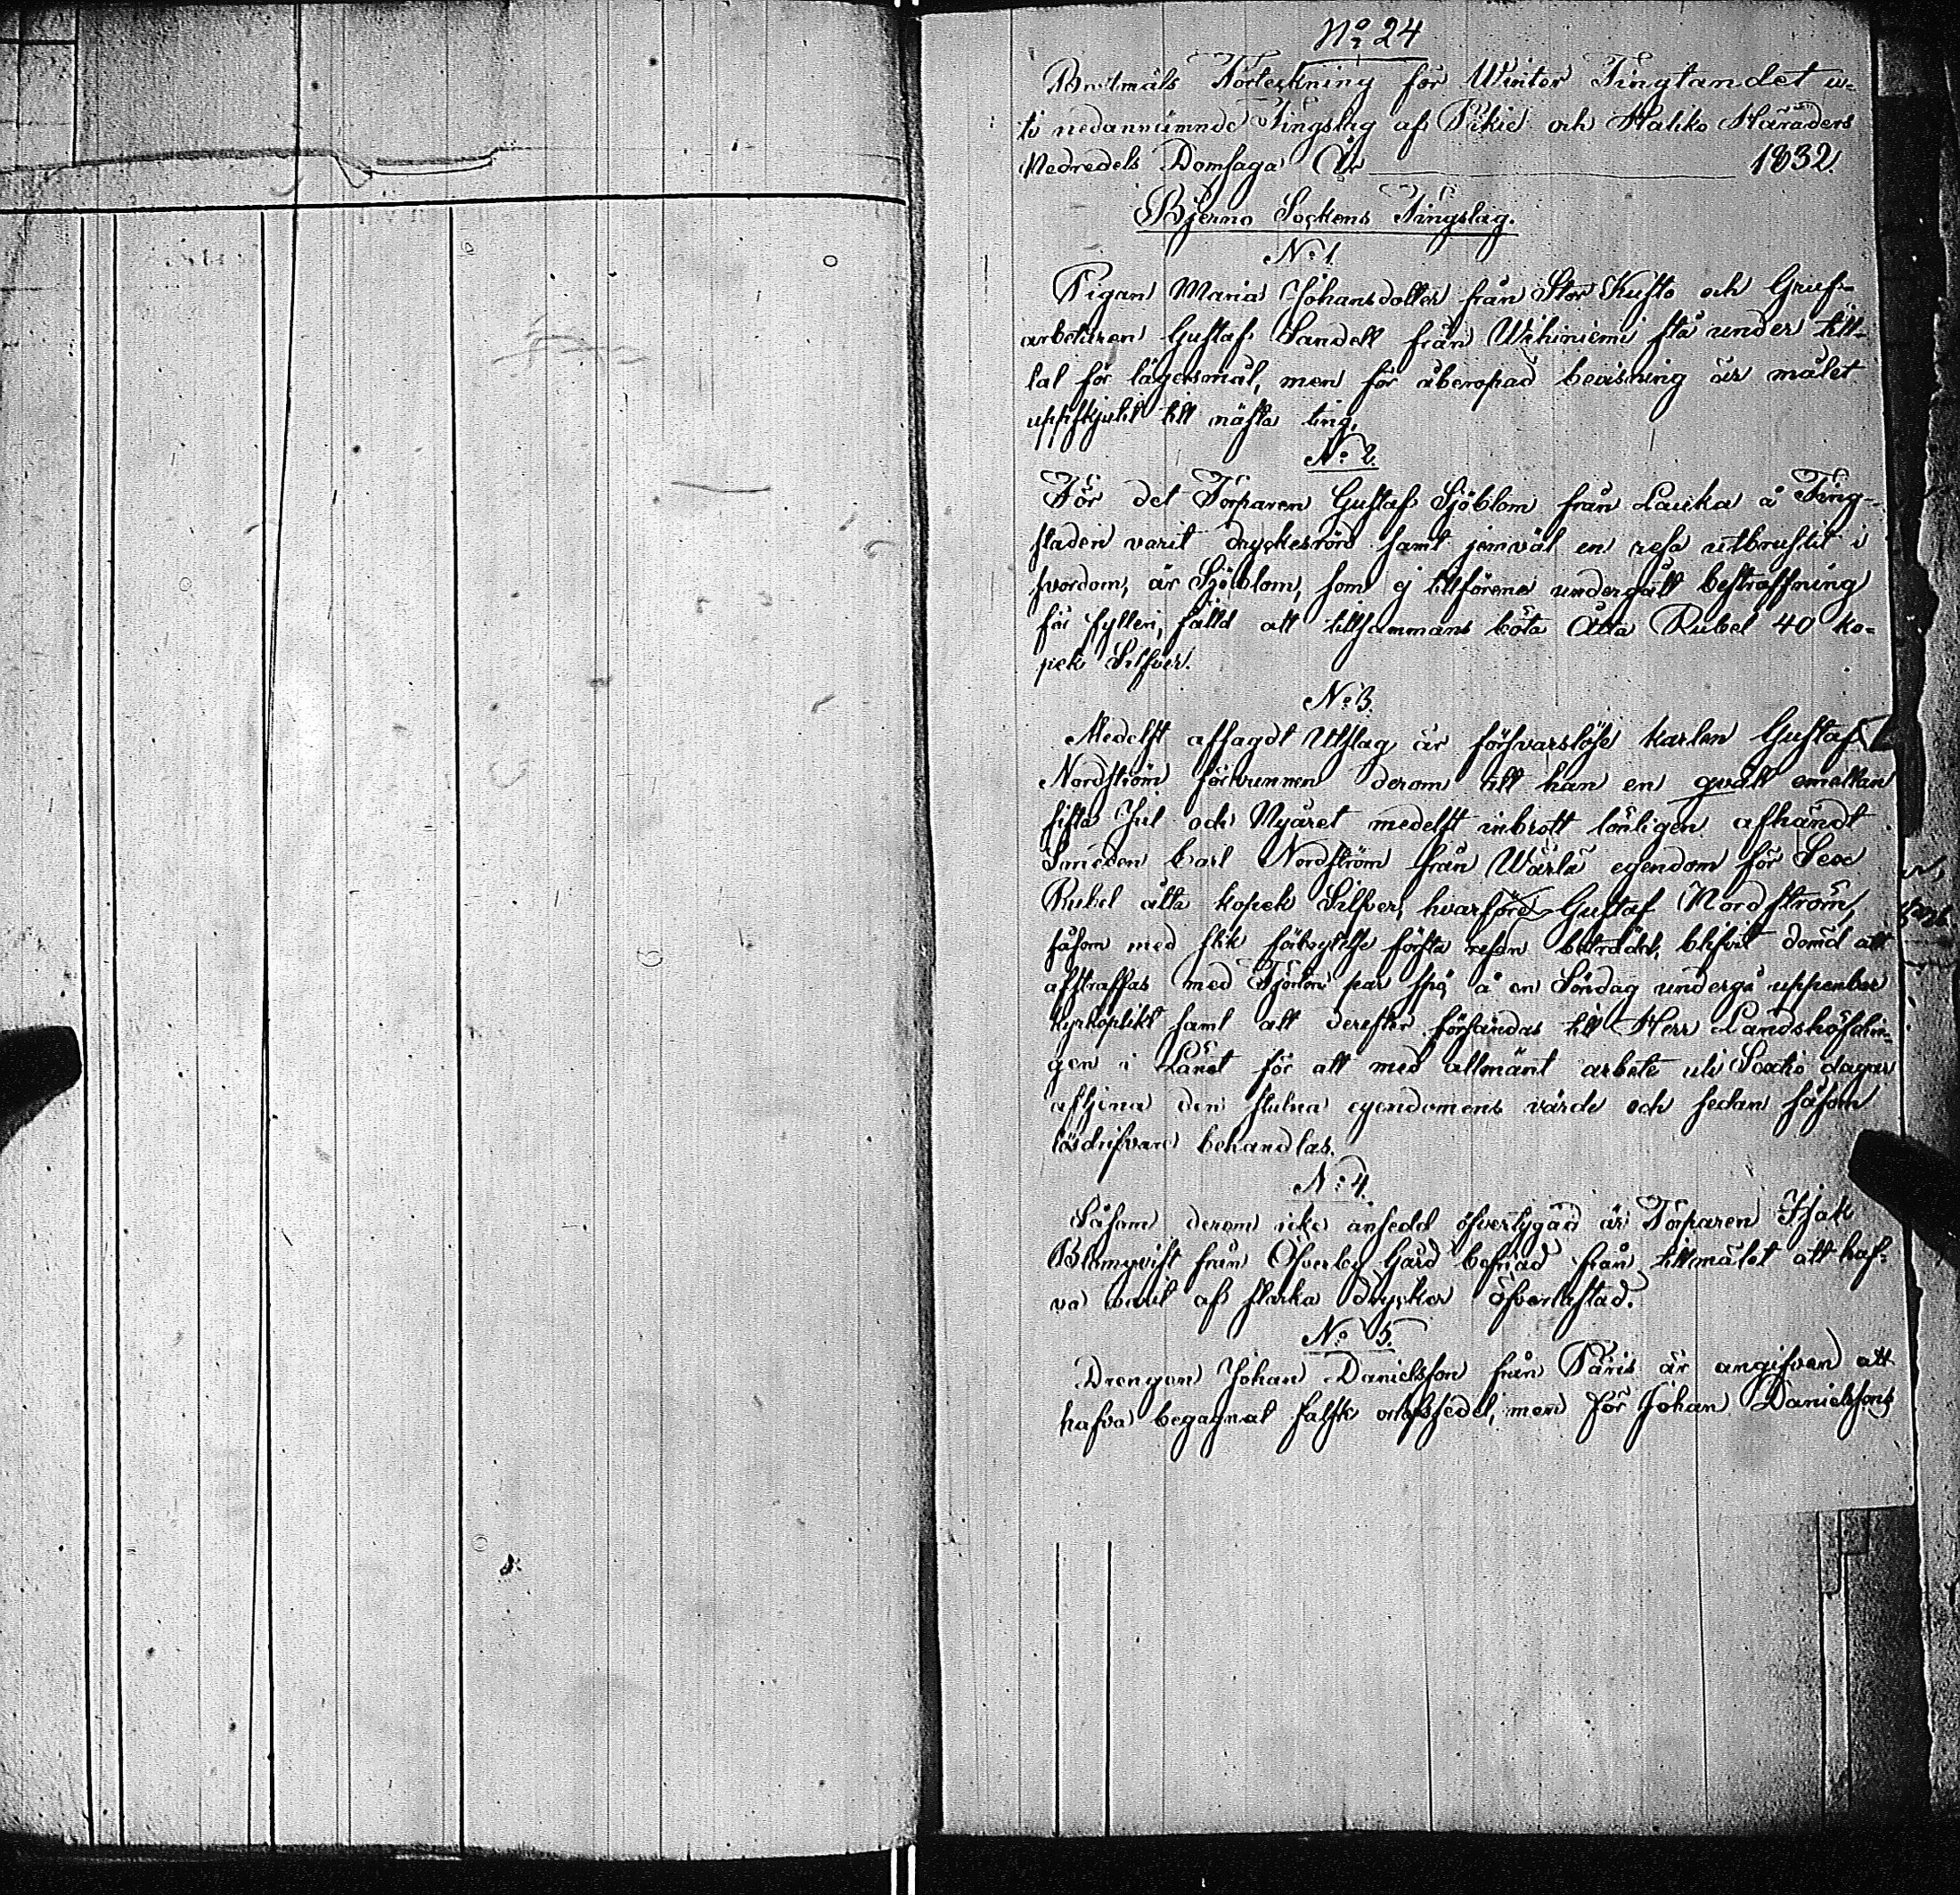 No 24
Brottmåls Förteckning för Winter Tingtandet u-
ti nedannämnde Tingslag af Pikie och Haliko Häraders
Nedredels Domsaga År 1832.
Bjerno Sockens Tingslag.
No 1.
Pigan Maria Johansdotter från Stor Kusto och Gruf-
arbetaren Gustaf Sandell från Wihiniemi stå under till-
tal för lägersmål, men för åberopad bevisning är målet
uppskjutit till nästa ting.
No 2.
För det Torparen Gustaf Sjöblom från Lauka å Ting-
staden varit dryckesrörd samt jemväl en resa utbrustit i
svordom, är Sjöblom, som ej tillförene undergått bestraffning
för fylleri, fälld att tillsammans böta Åtta Rubel 40 ko-
pek Silfver.
No 3.
Medelst afsagdt Utslag är försvarslöse karlen Gustaf
Nordström förvunnen derom att han en qväll emellan
sista Jul och Nyåret medelst inbrott lönligen afhändt
Smeden Carl Nordström från Wärlä egendom för Sex
Rubel åtta kopek Silfver, hvarföre Gustaf Nordström,
såsom med slik förbrytelse första resan beträdd, blifvit dömd att
afstraffas med Fjorton par spö, å en Söndag undergå uppenbar
kyrkoplikt samt att derefter försändas till Herr Landshöfdin-
gen i Länet för att med allmänt arbete uti Sextio dagar
aftjena den stulna egendomens värde och sedan såsom
lösdrifvare behandlas.
No 4.
Såsom derom icke ansedd öfvertygad är Torparen Isak
Blomqvist från Öfverby Gård befriad från tillmålet att haf-
va varit af starka drycker öfverlastad.
No 5.
Drengen Johan Danielsson från Päris är angifven att
hafva begagnat falsk orlofssedel, men för Johan Danielssons